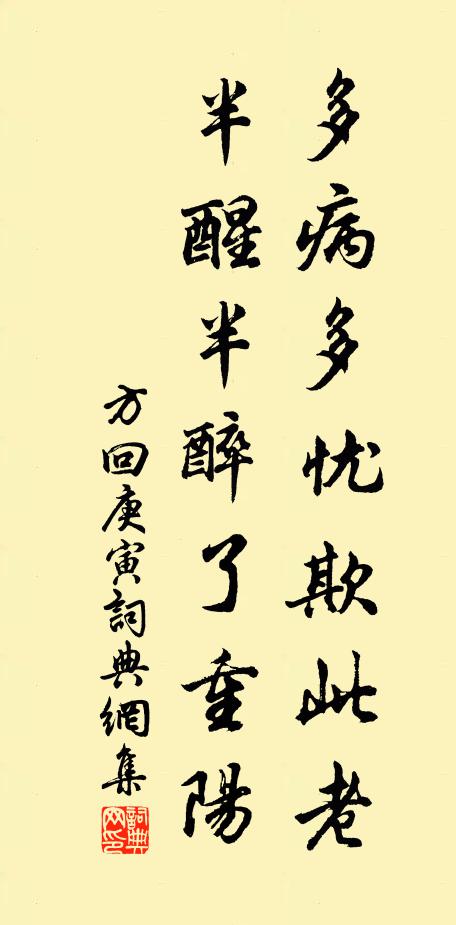 多病多忧欺此老
半醒半醉了重陽
方回庚寅詞典網集
詞典网印